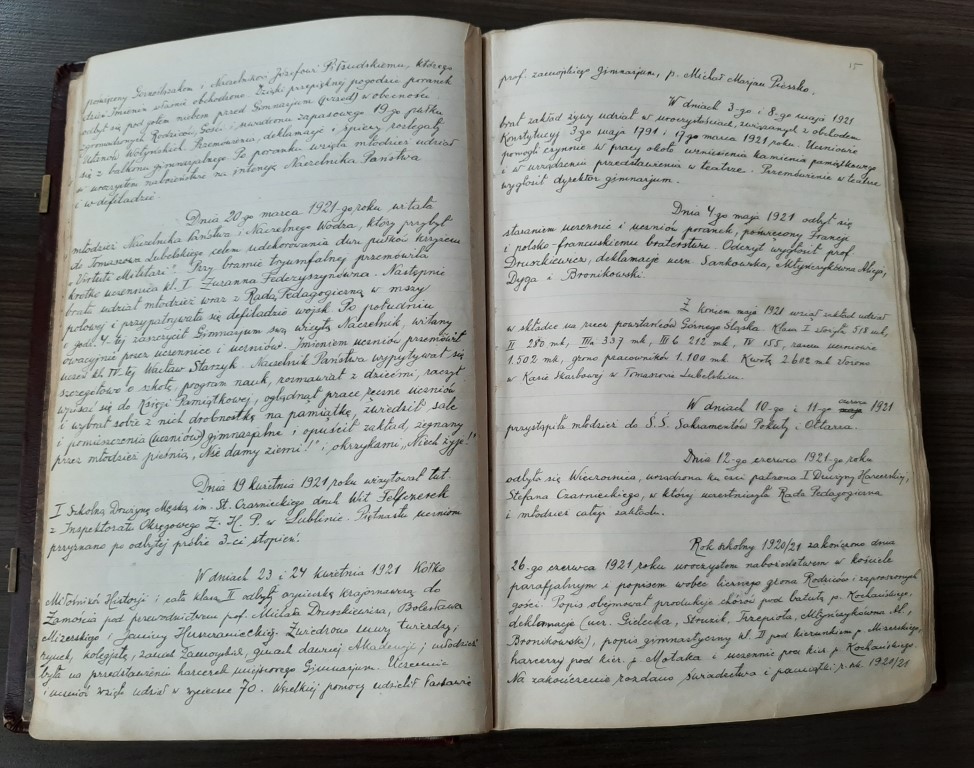 poświęcony Józefowi Piłsudskiemu, którego
dzień Imienin obchodzono. Dzięki przepięknej pogodzie poranek
odbył się pod gołem niebem przed Gimnazjum (przed) w obecności
zgromadzonych Rodziców, Gości i szwadronu zapasowego 19-go pułku
Ułanów Wołyńskich. Przemówienia, deklamacje i śpiewy rozlegały
się z balkonu gimnazjalnego. Po poranku wzięła młodzież udział
w uroczystem nabożeństwie na intencję Naczelnika Państwa
i w defiladzie.
Dnia 20-go marca 1921-go roku witała
młodzież Naczelnika Państwa i Naczelnego Wodza, który przybył
do Tomaszowa Lubelskiego celem udekorowania dwu pułków krzyżem
„Virtuti Militari”. Przy bramie tryumfalnej przemówiła
krótko uczennica kl. I Zuzanna Federzyszynówna. Następnie
brała udział młodzież wraz z Radą Pedagogiczną w mszy
polowej i przypatrywała się defiladzie wojsk. Po południu
o godz. 4-tej zaszczycił Gimnazjum swą wizytą Naczelnik, witany
owacyjnie przez uczennice i uczniów. Imieniem uczniów przemówił
uczeń kl. IV-tej Wacław Starzyk. Naczelnik Państwa wypytywał się
szczegółowo o szkołę, program nauk, rozmawiał z dziećmi, raczył
wpisać się do Księgi Pamiątkowej, oglądnął prace ręczne uczniów
i wybrał sobie z nich drobnostkę na pamiątkę, zwiedził sale
i pomieszczenia (uczniów) gimnazjalne i opuścił zakład, żegnany
przez młodzież pieśnią „Nie damy ziemi!” i okrzykami „Niech żyje!”
Dnia 19 kwietnia 1921 roku wizytował tut.
I Szkolną Drużynę Męską im. St. Czarnieckiego druh Wit
z Inspektoratu Okręgowego Z. H. P. w Lublinie. Piętnastu uczniom
przyznano po odbytej próbie 3-ci stopień.
W dniach 23 i 24 kwietnia 1921 Kółko
Miłośników Historji i cała klasa II odbyły wycieczkę krajoznawczą do
Zamościa pod przewodnictwem prof. Michała Druszkiewicza, Bolesława
Mizerskiego i Janiny. Zwiedzono mury twierdzy,
rynek, kolegjatę, zamek Zamoyskich, gmach dawnej Akademji i młodzież
była na przedstawieniu harcerek miejscowego Gimnazjum. Uczennic
i uczniów wzięło udział w wycieczce 70. Wielkiej pomocy udzielił łaskawie
15
prof. zamojskiego gimnazjum, p. Michał Marjan Pieszko.
W dniach 3-go i 8-go maja 1921
brał zakład żywy udział w uroczystościach, związanych z obchodem
Konstytucyj 3-go maja 1791 i 17-go marca 1921 roku. Uczniowie
pomogli czynnie w pracy około wzniesienia kamienia pamiątkowego
i w urządzeniu przedstawienia w teatrze. Przemówienie w teatrze
wygłosił dyrektor gimnazjum.
Dnia 4-go maja 1921 odbył się
staraniem uczennic i uczniów poranek, poświęcony Francji
i polsko-francuskiemu braterstwu. Odczyt wygłosił prof.
Druszkiewicz, deklamacje uczn. Sankowska, Młyńczykówna Alicja,
Dyga i Bronikowski.
Z końcem maja 1921 wziął zakład udział
w składce na rzecz powstańców Górnego Śląska. Klasa I złożyła 518 mk,
II 280 mk, IIIa 337 mk, III b 212 mk, IV 155, razem uczniowie
1.502 mk, grono pracowników 1.100 mk. Kwotę 2.602 mk złożono
w Kasie Skarbowej w Tomaszowie Lubelskim.
W dniach 10-go i 11-go maja czerwca 1921
przystąpiła młodzież do Ś.Ś. Sakramentów Pokuty i Ołtarza.
Dnia 12-go czerwca 1921-go roku
odbyła się Wieczornica, urządzona ku czci patrona I Drużyny Harcerskiej,
Stefana Czarnieckiego, w której uczestniczyła Rada Pedagogiczna
i młodzież całego zakładu.
Rok szkolny 1920/21 zakończono dnia
26-go czerwca 1921 roku uroczystem nabożeństwem w kościele
parafjalnym i popisem wobec licznego grona Rodziców i zaproszonych
gości. Popis obejmował produkcje chórów pod batutą p. Kochańskiego,
deklamacje (ucz. Gielecka, Trzepiota, Młyńczykówna Al.,
Bronikowski), popis gimnastyczny kl. II pod kierunkiem p. Mizerskiego,
harcerzy pod kier. p. Motaka i uczennic pod kier. p. Kochańskiego.
Na zakończenie rozdano świadectwa i pamiątki r. szk. 1920/21